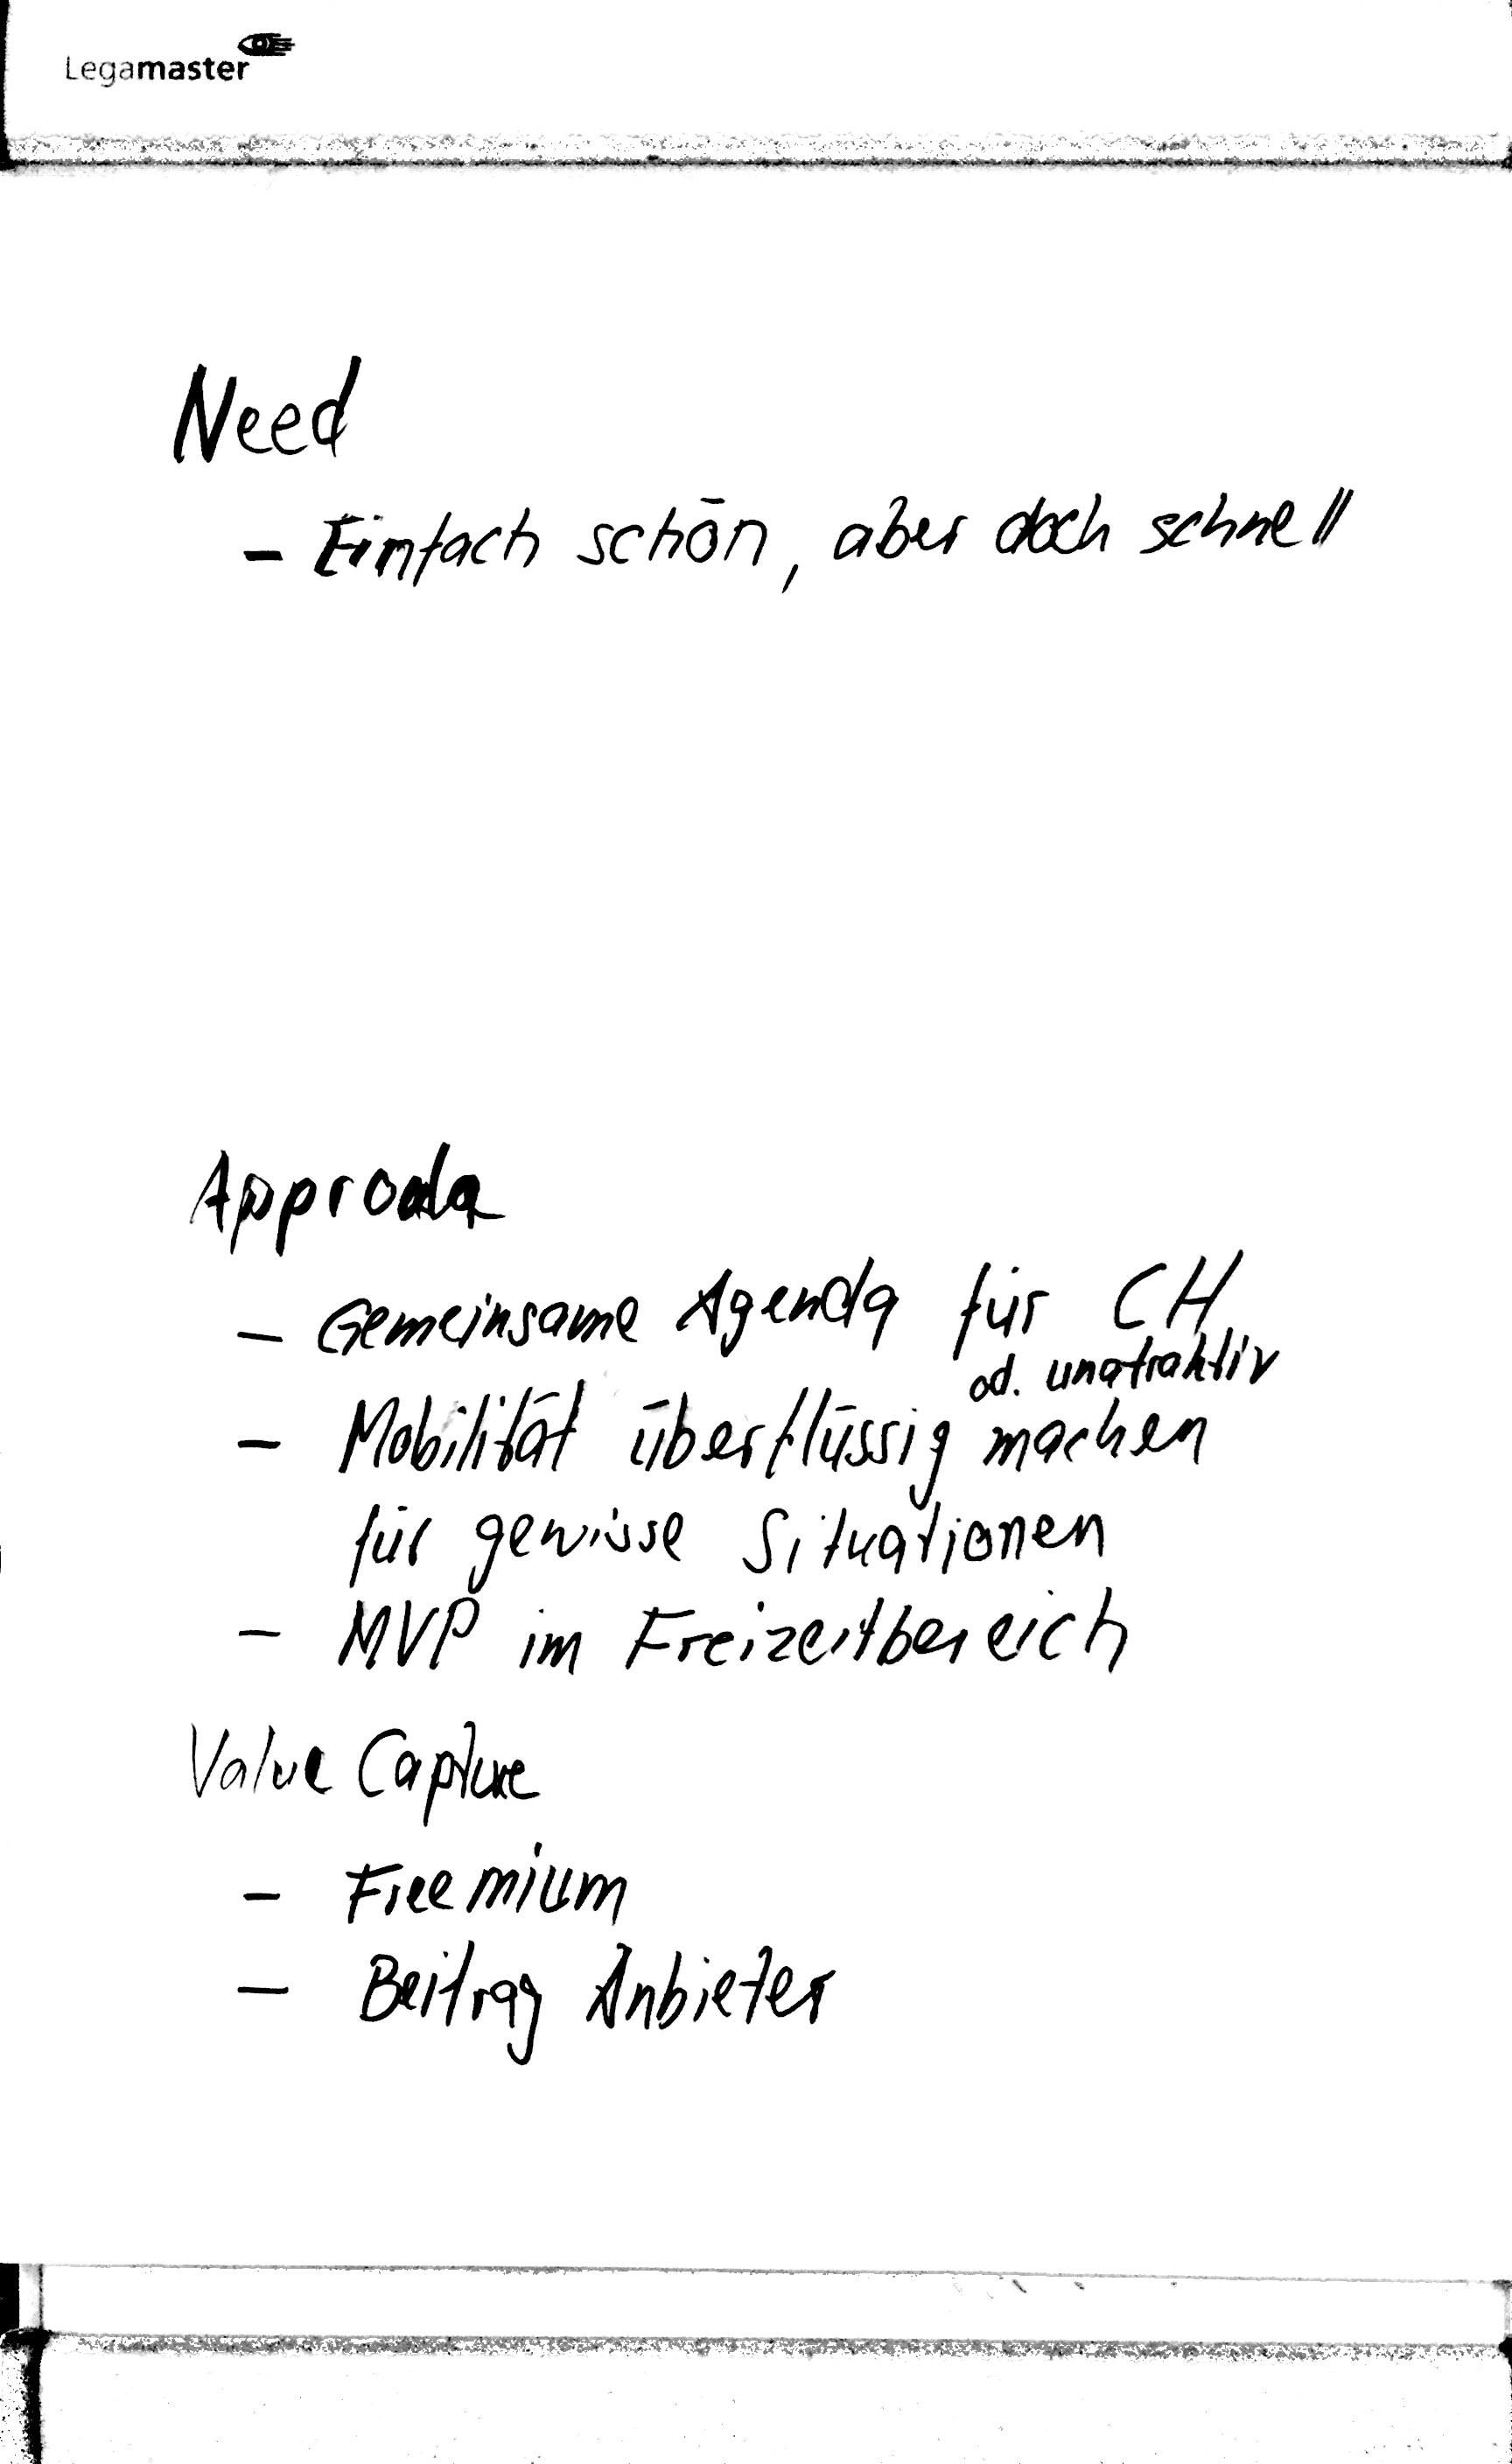 Legamaster
Need
- Einfach schön, aber doch schnell
Approach
- Gemeinsame Agenda für CH
od. unatraktiv
- Mobilität überflüssig machen
für gewisse Situationen
- MVP im Freizeitbereich
Value Capture
- Freemium
- Beitrag Anbieter